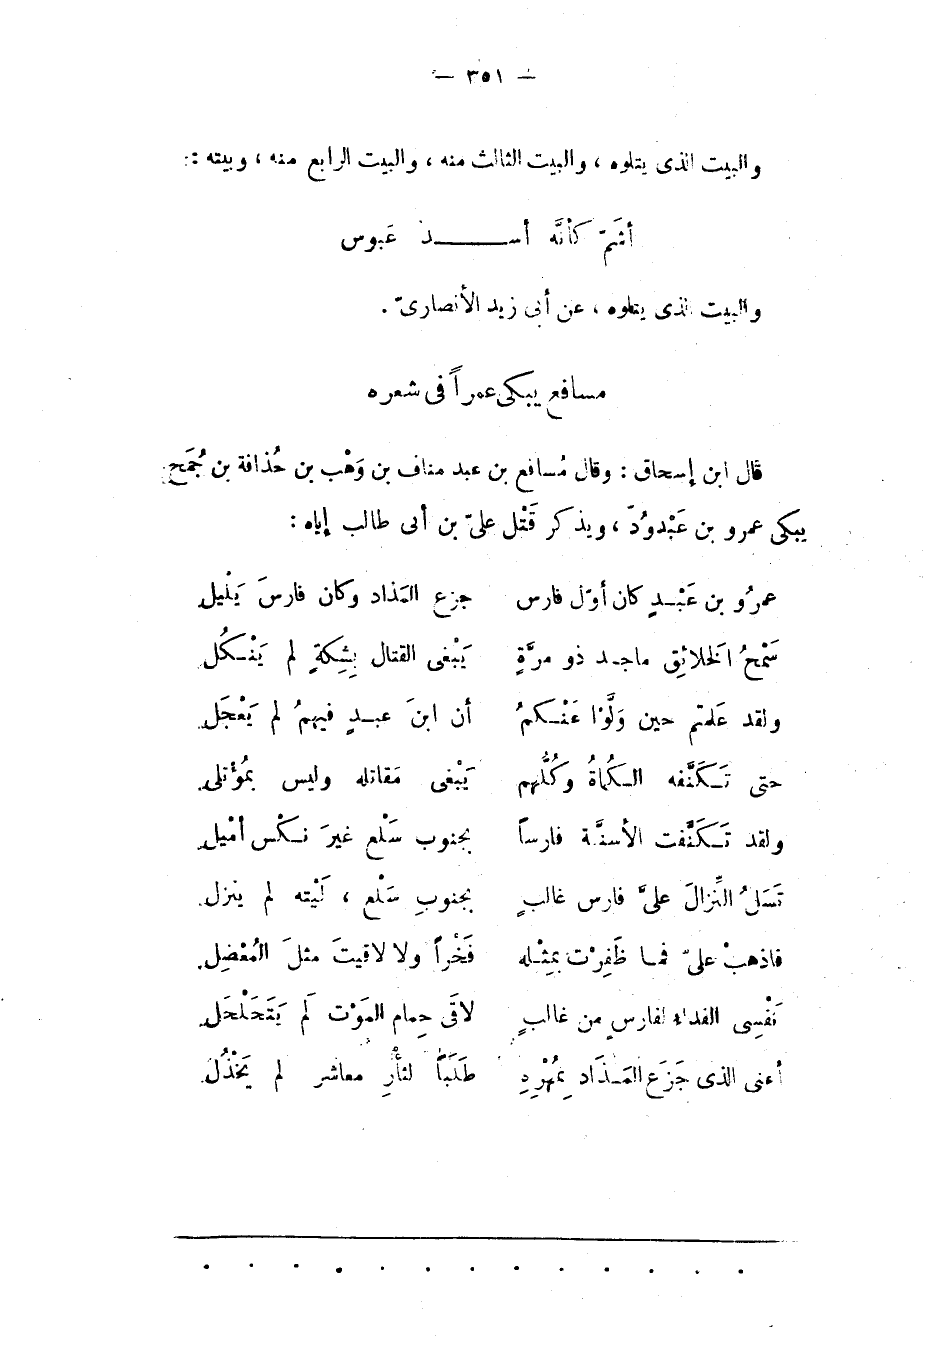 — ٣٥١ —
والبيت الذى يتلوه ، والبيت الثالث منه ، والبيت الرابع منه ، وبيته :
أشَمّ كأنَّه أسد عَبوس
والبيت الذى يتلوه ، عن أبى زيد الأنصارىّ .
مسافع يبكى عمراً فى شعره
قال ابن إسحاق : وقال مُسافع بن عبد مناف بن وَهْب بن حُذافة بن جُمَح
يبكى عمرو بن عَبْدودّ ، ويذكر قَتْل علىّ بن أبى طالب إياه :
عمرُو بن عَبْدٍ كان أوّل فارس جزع المَذاد وكان فارسَ يَلْيل
سَمْحُ الخلائِق ماجد ذو مرَّةٍ يَبْغى القتال بِشِكةٍ لم يَنْكُل
ولقد عَلمتم حين وَلَّوْا عَنْكمُ أن ابنَ عبدٍ فيهمُ لم يَعْجَل
حتى تَكَنَّفه الكُماةُ وكُلُّهم يَبْغى مَقاتله وليس بمُؤْتلى
ولقد تَكَنَّفت الأسنَّة فارساً بجنوب سَلْع غيرَ نكْس أمْيل
تَسَلُ النِّزالَ علىَّ فارس غالبٍ بجنوبِ سَلْع ، لَيْته لم ينزل
فاذهبْ علىّ فما ظَفِرْت بمِثْله فَخْراً ولا لاقيتَ مثلَ المُعْضِل
نَفْسِى الفداء لفارسٍ من غالبٍ لاقَى حِمام المَوْت لَم يَتَحَلْحَل
أعنى الذى جَزَع المَذَاد بِمُهْرِهِ طَلَباً لثأْرِ معاشر لم يَخْذُل